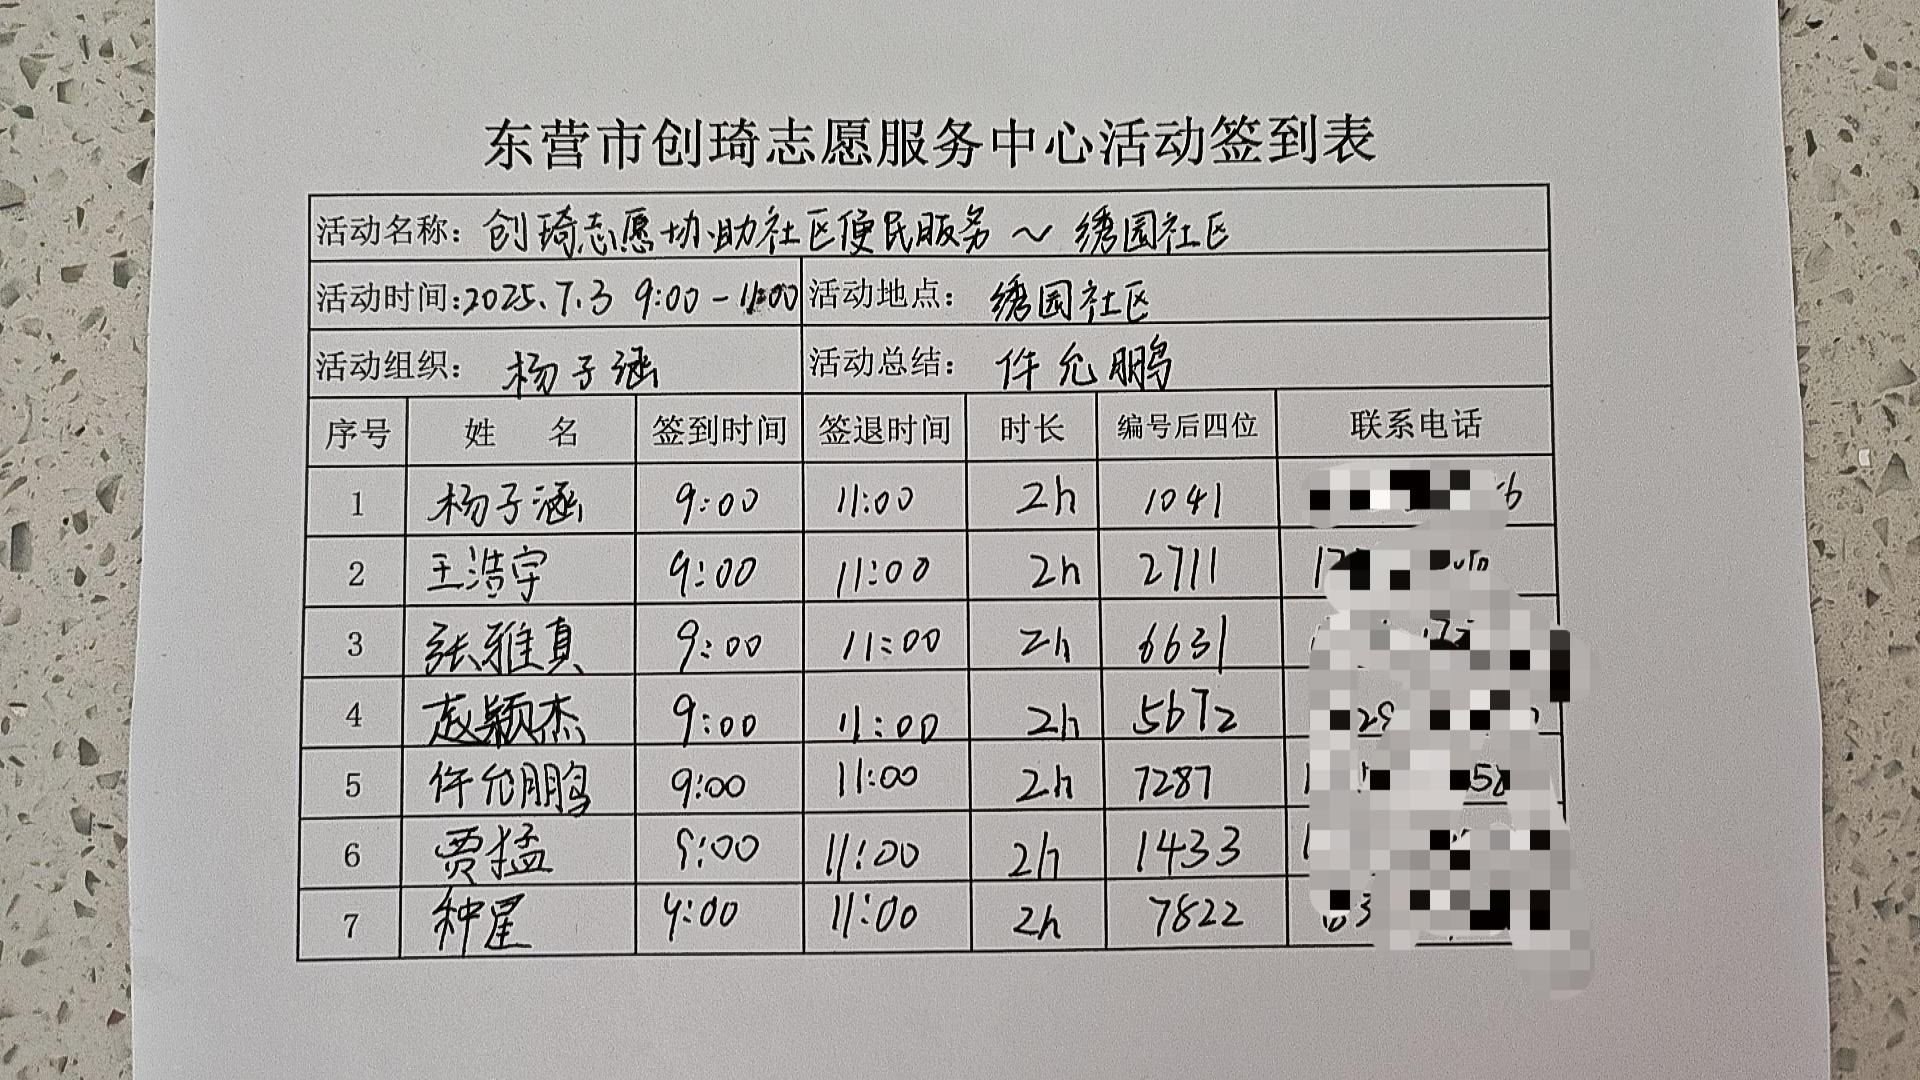 东营市创琦志愿服务中心活动签到表
活动名称: 创琦志愿协助社区便民服务 ~ 绣园社区
活动时间:2025.7.3 9:00-11:00 活动地点: 绣园社区
活动组织: 杨子涵 活动总结: 仵允鹏
序号 姓 名 签到时间 签退时间 时长 编号后四位 联系电话
1 杨子涵 9:00 11:00 2h 1041
2 王浩宇 9:00 11:00 2h 2711
3 张雅真 9:00 11:00 2h 6631
4 赵颖杰 9:00 11:00 2h 5672
5 仵允鹏 9:00 11:00 2h 7287
6 贾猛 9:00 11:00 2h 1433
7 种星 9:00 11:00 2h 7822